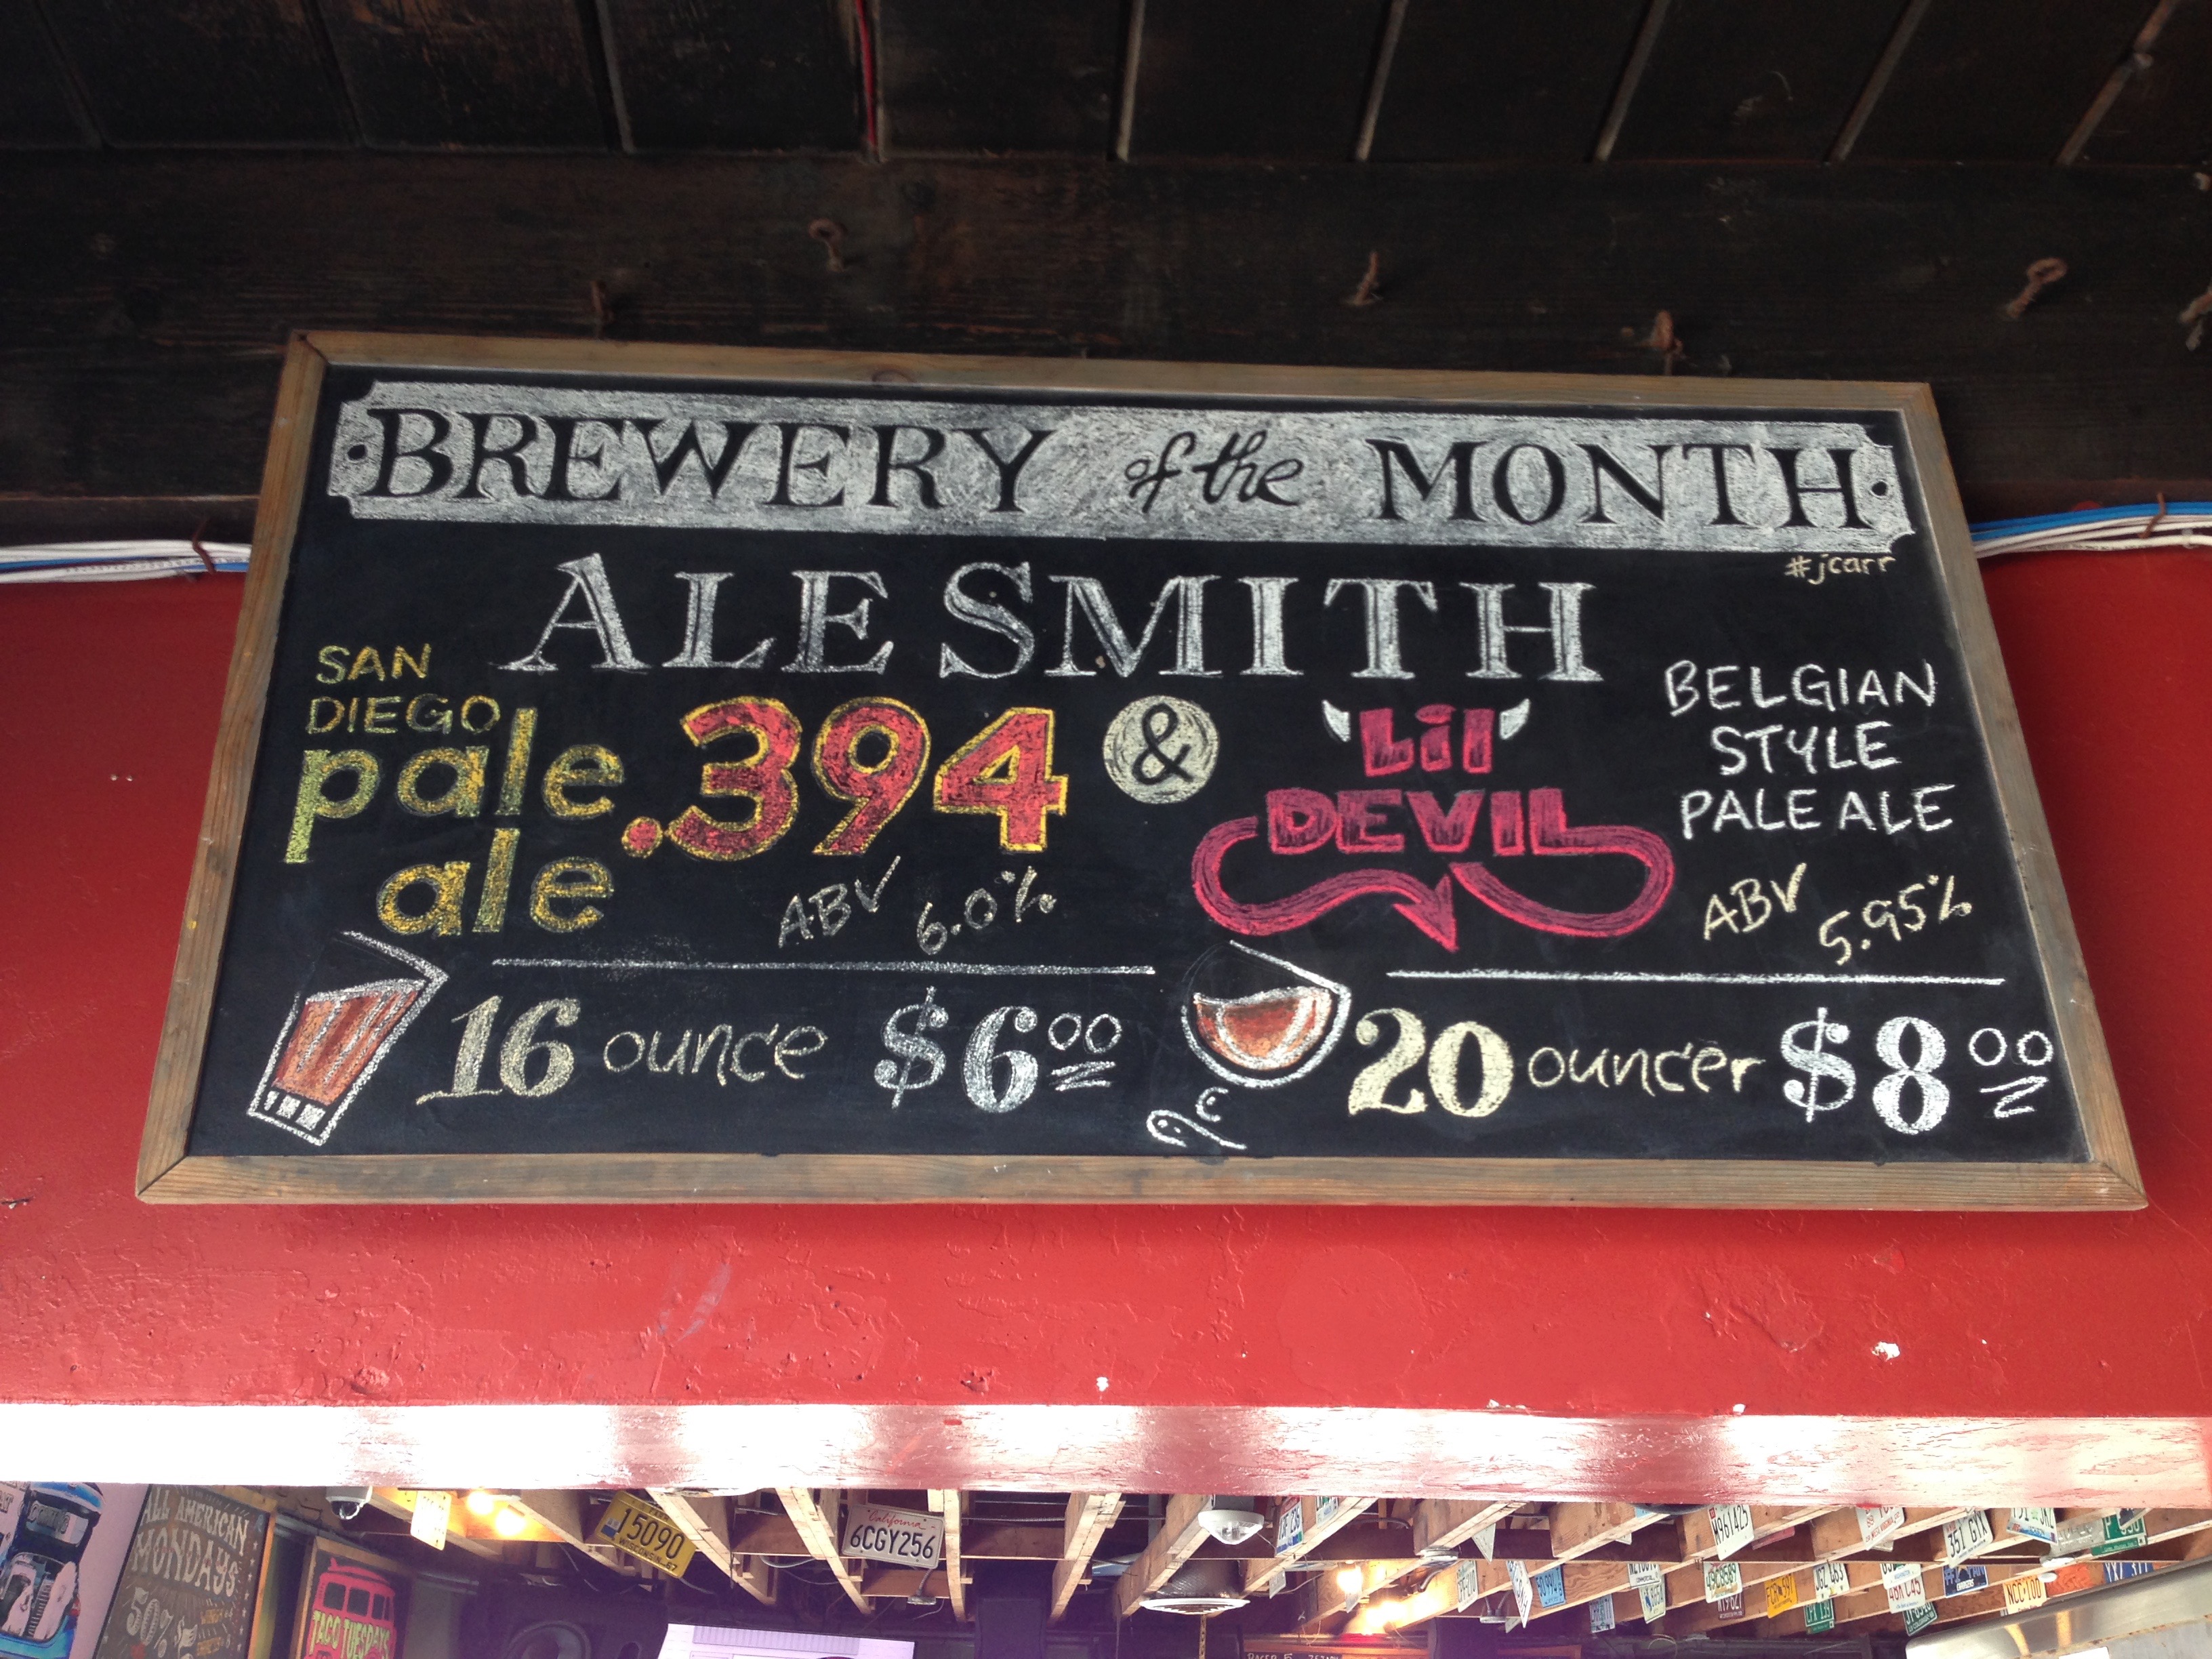 BREWERY of the MONTH
#jcarr
ALESMITH
SAN
DIEGO
pale
ale
.394
ABV 6.0%
&
Lil
DEVIL
BELGIAN
STYLE
PALE ALE
ABV 5.95%
16 ounce $6.00
20 ouncer $8.00
ALL AMERICAN
MONDAYS
50%
TACO TUESDAYS
15090
WISCONSIN
California
6CGY256
W961425
351 GTX
NCC-100